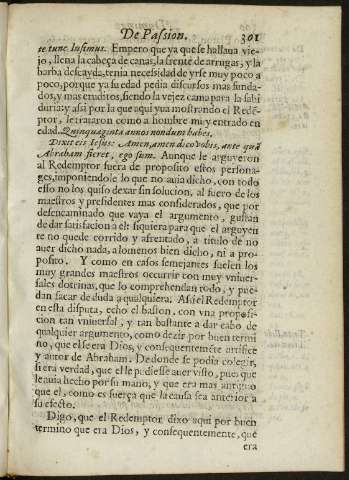 De Passion. 301
te tunc lusimus. Empero que ya que se hallaua vie-
jo, llena la cabeça de canas, la frente de arrugas, y la
barba descayda, tenia necessidad de yrse muy poco a
poco, porque ya su edad pedia discursos mas funda-
dos, y mas eruditos, siendo la vejez cama para la sabi
duria: y assi por la que aqui yua mostrando el Redẽ-
ptor, le trataron como a hombre muy entrado en
edad. Quinquaginta annos nondum habes.
Dixit eis Iesus: Amen, amen dico vobis, ante quã
Abraham fieret, ego sum. Aunque le arguyeron
al Redemptor fuera de proposito estos persona-
ges, imponiendole lo que no auia dicho, con todo
esso no los quiso dexar sin solucion, al fuero de los
maestros y presidentes mas considerados, que por
desencaminado que vaya el argumento, gustan
de dar satisfacion a el: siquiera para que el arguyen
te no quede corrido y afrentado, a titulo de no
auer dicho nada, a lomenos bien dicho, ni a pro-
posito. Y como en casos semejantes suelen los
muy grandes maestros occurrir con muy vniuer-
sales dotrinas, que lo comprehendan todo, y pue-
dan sacar de duda a qualquiera. Assi el Redemptor
en esta disputa, echo el baston, con vna proposi-
cion tan vniuersal, y tan bastante a dar cabo de
qualquier argumento, como dezir por buen termi
no, que el se era Dios, y consequentemẽte artifice
y autor de Abraham. De donde se podia colegir,
si era verdad, que el le pudiesse auer visto, pues que
le auia hecho por su mano, y que era mas antiguo
que el, como es fuerça que la causa sea anterior a
su efecto.
Digo, que el Redemptor dixo aqui por buen
termino que era Dios, y consequentemente, que
era